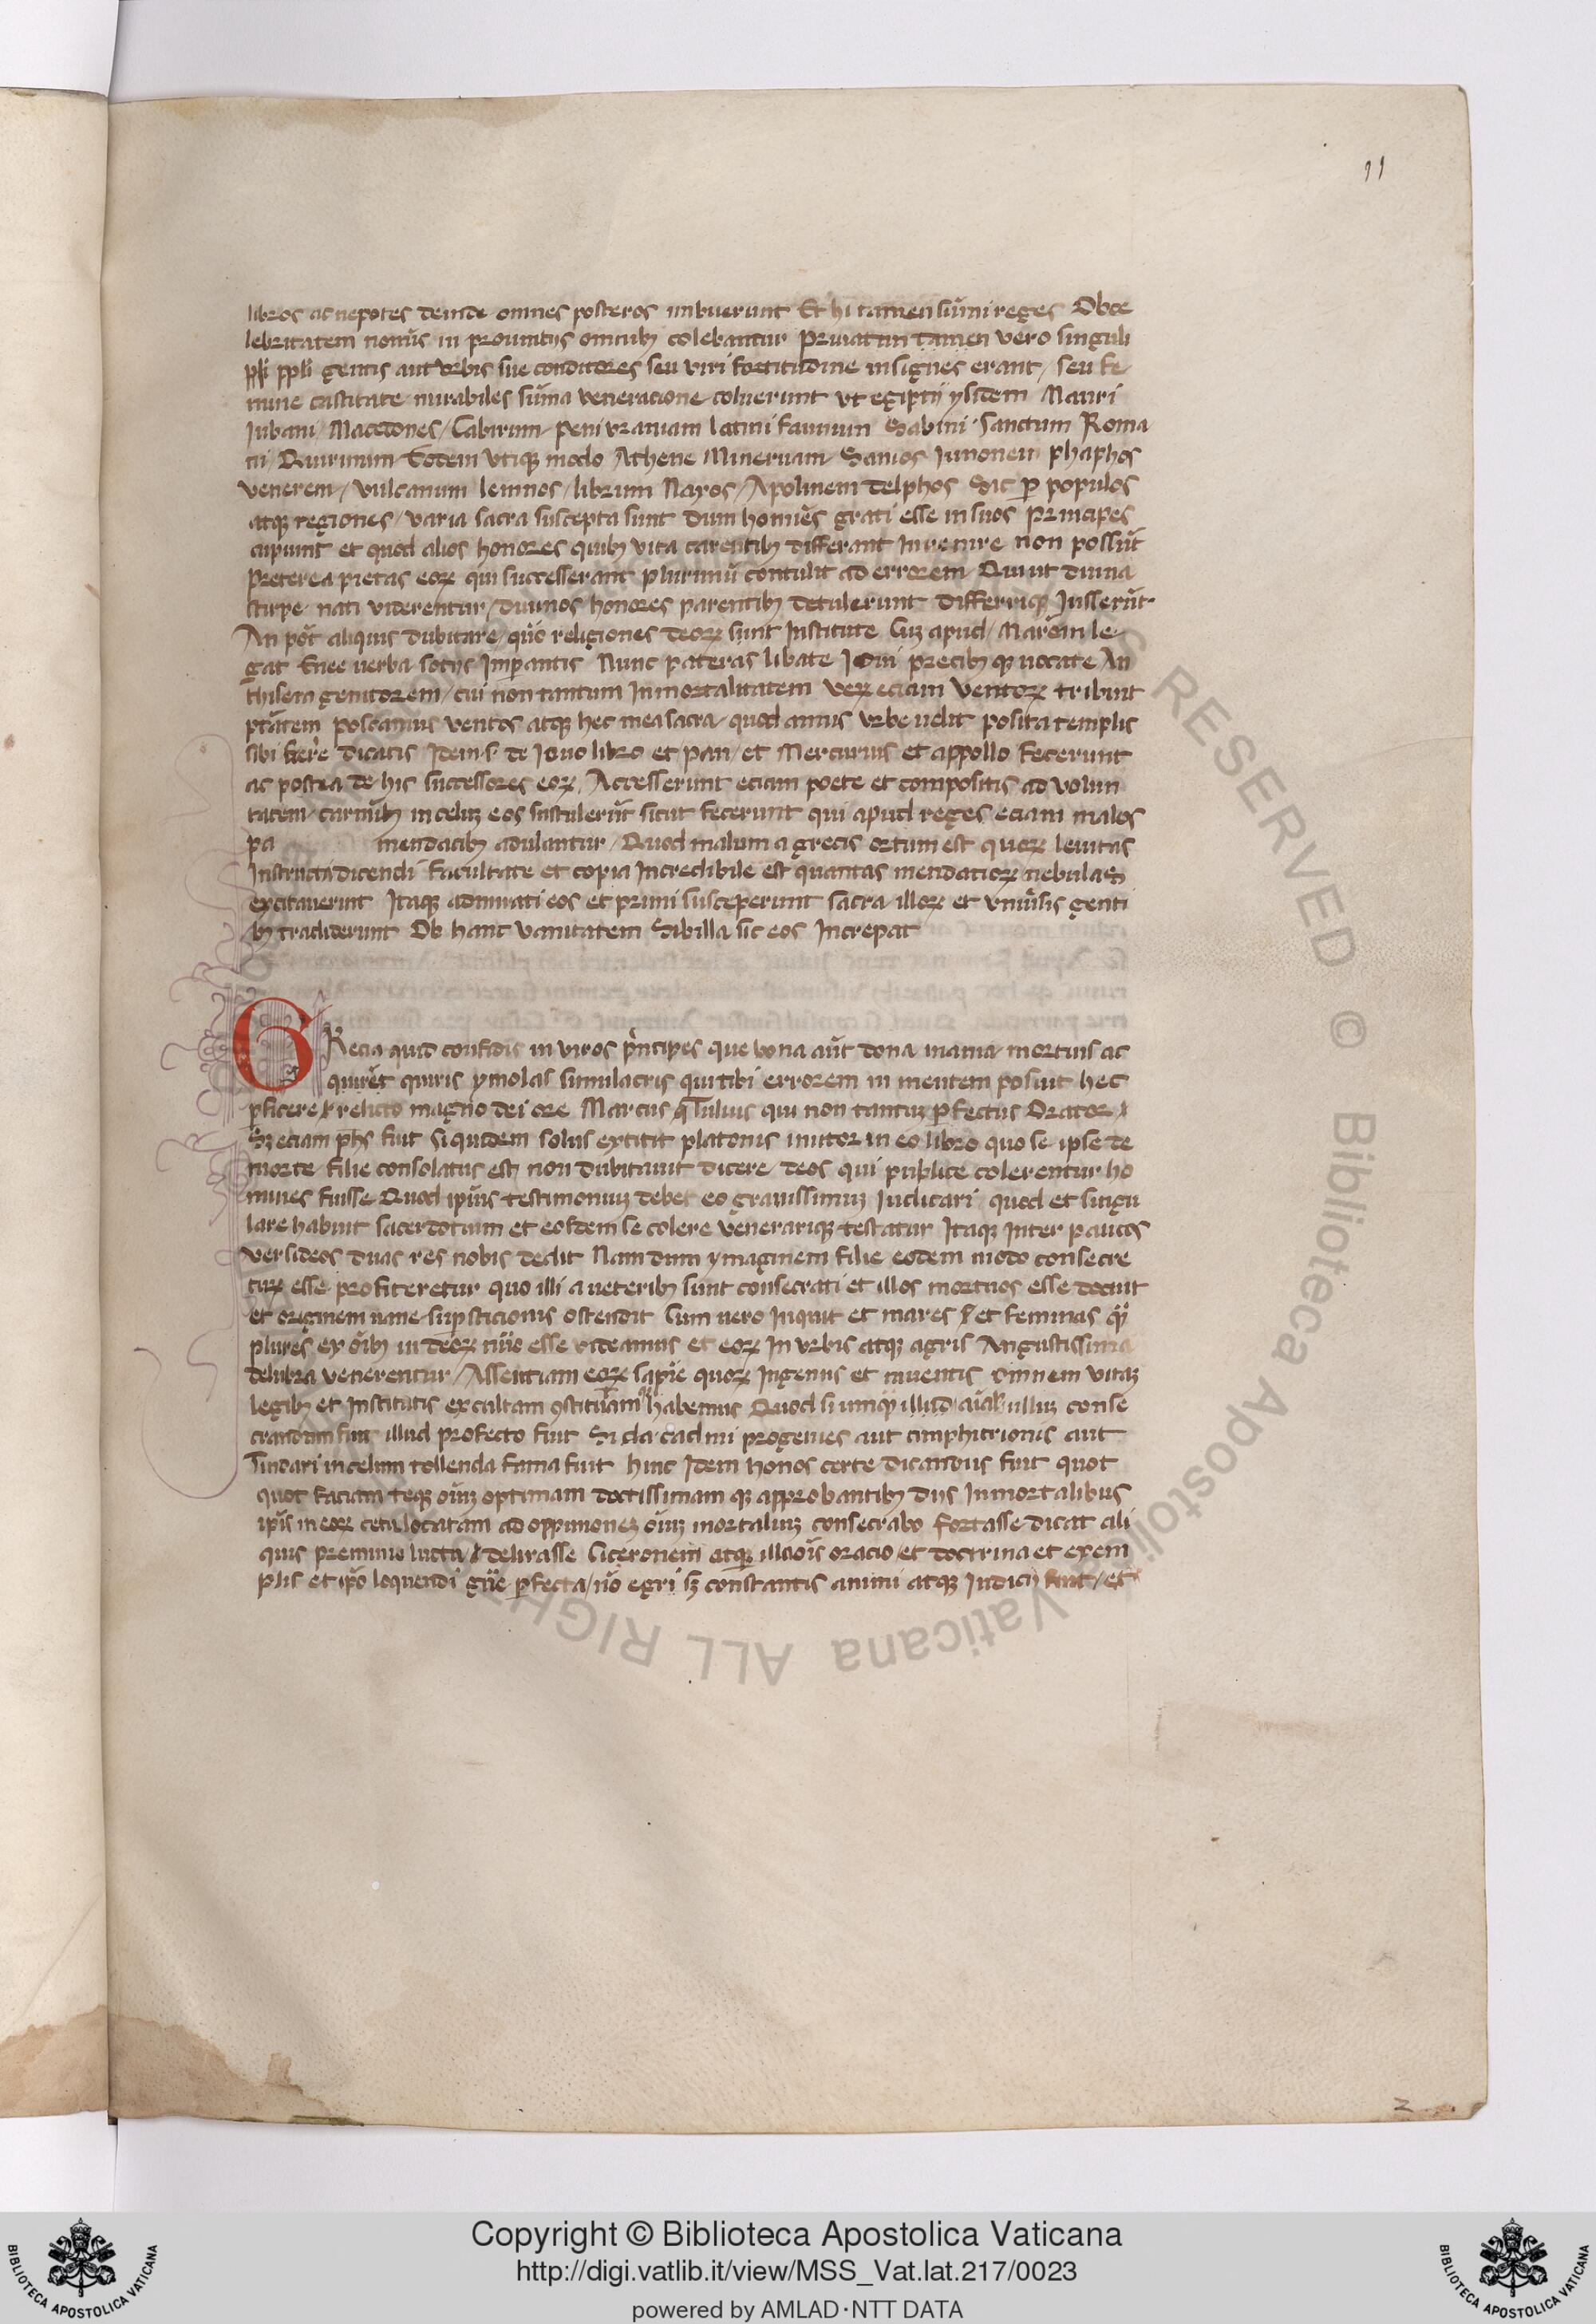 11
libros ac nepotes deinde omnes posteros imbuerunt Et hi tamen sūmi reges Ob ce
lebritatem nomīs in prouintijs omnibꝫ colebantur Priuatim tamen vero singuli
ppłi gentis aut vrbis sue conditores seu viri fortitudine insignes erant / seu fe
mine castitate mirabiles sūma veneracione coluerunt vt egiptij ysidem Mauri
Iubam / Macedones / Cabirum / Peni vraniam latini faunum Sabini Sanctum Roma
ni / Quirinum Eodem vtiqꝫ modo Athene Mineruam Samos Iunonem phaphos
venerem / vulcanum lemnos / librum Naxos / Apolinem delphos Sic ꝑ populos
atqꝫ regiones / varia sacra suscepta sunt dum homiēs grati esse in suos principes
cupiunt et quod alios honores quibꝫ vita carentibꝫ differant Inuenire non possūt
Preterea pietas eoꝝ qui successerant plurimū contulit ad errorem Qui ut diuina
stirpe nati viderentur / diuinos honores parentibꝫ detulerunt differriqꝫ Iusserūt
An pōt aliquis dubitare / quō religiones deoꝝ sunt Institute Cuꝫ apud / Marōm le
gat Enee verba sotijs Impantis Nunc pateras libate Ioui precibꝫ qꝫ uocate An
chisem genitorem / cui non tantum Inmortalitatem veꝝ eciam ventoꝝ tribuit
ptātem poscamus ventos atqꝫ hec mea sacra / quod annis vrbe uelit posita templis
sibi ferre dicatis Idem s de Iouo libro et pan / et Mercurius et appollo fecerunt
ac postea de his successores eoꝝ / Accesserunt eciam poete et compositis ad volun
tatem carmībꝫ in celuꝫ eos sustulerūt sicut fecerunt qui apud reges eciam malos
pa mendacibꝫ adulantur / Quod malum a grecis ortum est quoꝝ leuitas
Instructa dicendi facultate et copia Incredibile est quantas mendatioꝝ nebulas
excitauerint Itaqꝫ admirati eos et primi susceperunt sacra illoꝝ et vniūsis genti
bꝫ tradiderunt Ob hanc vanitatem Sibilla sic eos Increpat
GRecia quid confidis in viros pⁱncipes que bona aūt dona inania mortuis ac
quirēt quiris ymolas simulacris qui tibi errorem in mentem posuit hec
ꝑficere relicto magno dei ore Marcus qꝫ Tulius qui non tantuꝫ ꝑfectus Orator
Sꝫ eciam phs fuit Siquidem solus extitit platonis imitor in eo libro quo se ipse de
morte filie consolatus est non dubitauit dicere deos qui publice colerentur ho
mines fuisse Quod ipīus testimoniuꝫ debet eo grauissimuꝫ Iudicari quod et singu
lare habuit sacerdotium et eosdem se colere venerariqꝫ testatur Itaqꝫ Inter paucos
versi deos duas res nobis dedit Nam dum ymaginem filie eodem modo consecre
tuꝝ esse profiteretur quo illi a veteribꝫ sunt consecrati et illos mortuos esse docuit
et originem uane supsticionis ostendit Cum uero Inquit et mares et feminas
plures ex oībꝫ in deoꝝ nūo esse videamus et eoꝝ In vrbis atqꝫ agris Angustissima
delubra venerentur / Assentiam eoꝝ sapīe quoꝝ Ingenijs et inuentis omnem vitaꝫ
legibꝫ et Institutis excultam ꝯstitutam habemus Quod si umqꝫ illud aīal ullum conse
crandum fuit illud profecto fuit Si da cadmi progenies aut amphitrionis aut
Tindari in celum tollenda fama fuit hinc Idem honos certe dicandus fuit quot
quot faciam teqꝫ oīuꝫ optimam doctissimam qꝫ approbantibꝫ dijs Inmortalibus
ipīs in eoꝝ cetu locatam ad oppinioneꝫ oīuꝫ mortaliuꝫ consecrabo fortasse dicat ali
quis preminio luctu delirasse Ciceronem atqꝫ illa oīs oracio / et doctrina et exem
plis et ipō loquendi gūe ꝑfecta / nō egri sꝫ constantis animi atqꝫ Iudicij fuit / et
2
BIBLIOTECA APOSTOLICA VATICANA
Copyright © Biblioteca Apostolica Vaticana
http://digi.vatlib.it/view/MSS_Vat.lat.217/0023
powered by AMLAD·NTT DATA
BIBLIOTECA APOSTOLICA VATICANA